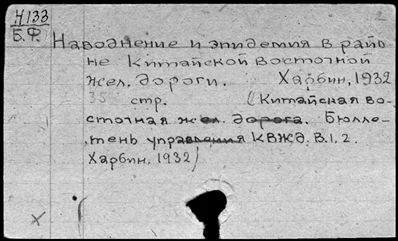 Н133
Б.Ф.
Наводнение и эпидемия в райо
не Китайской Восточной
жел. дороги. Харбин, 1932
35 стр. (Китайская во-
сточная жел. дорога. Бюлле-
тень управления КВЖД. В.1, 2.
Харбин, 1932)